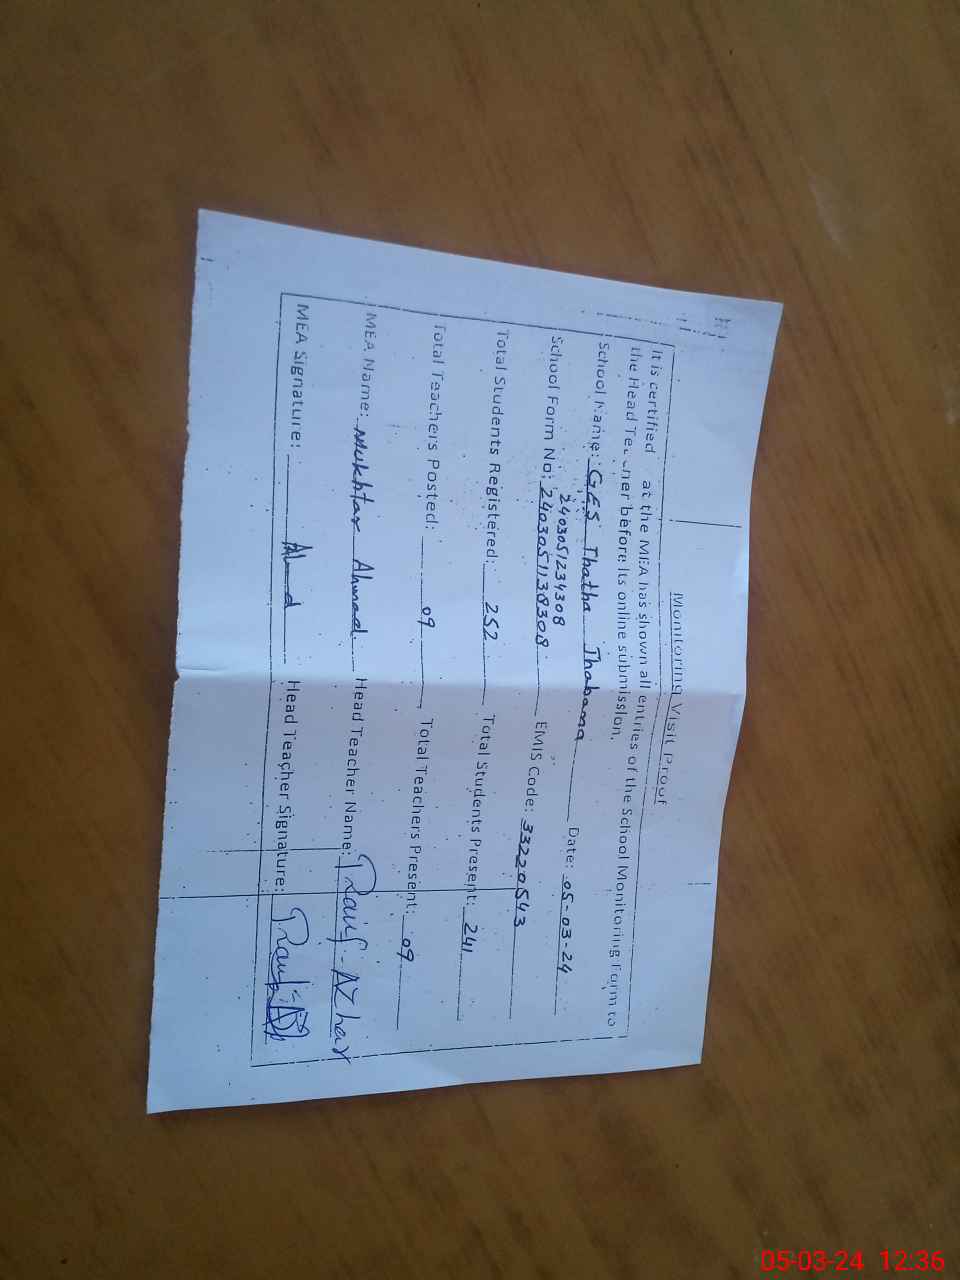 Monitoring Visit Proof
It is certified at the MEA has shown all entries of the School Monitoring Form to
the Head Teacher before its online submission.
School Name: GES Thatha Thabana Date: 05-03-24
2403051234308
School Form No: 2403051138308 EMIS Code: 33220543
Total Students Registered: 252 Total Students Present: 241
Total Teachers Posted: 09 Total Teachers Present: 09
MEA Name: Mukhtar Ahmad Head Teacher Name: Azhar
MEA Signature: Head Teacher Signature:
05-03-24 12:36